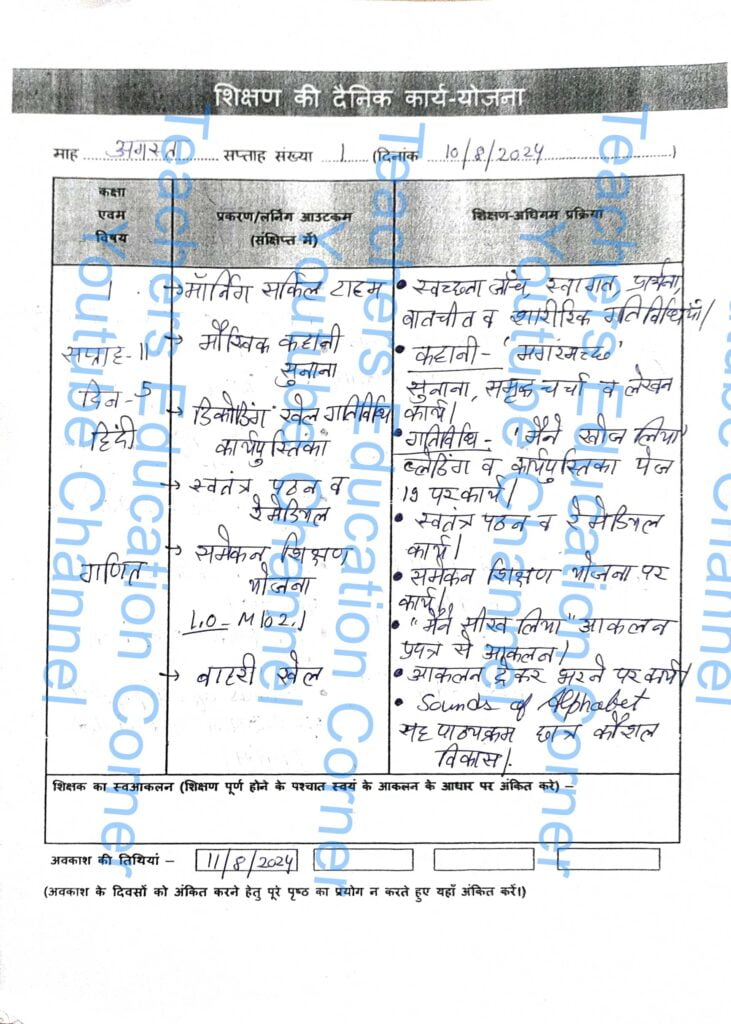 शिक्षण की दैनिक कार्य-योजना
माह अगस्त सप्ताह संख्या 1 (दिनांक 10/8/2024)
कक्षा
एवम
विषय
प्रकरण/लर्निंग आउटकम
(संक्षिप्त में)
शिक्षण-अधिगम प्रक्रिया
1
सप्ताह-11
दिन-5
हिंदी
गणित
→ मॉर्निंग सर्किल टाइम
→ मौखिक कहानी
सुनाना
→ डिकोडिंग खेल गतिविधि
कार्यपुस्तिका
→ स्वतंत्र पठन व
रेमेडियल
→ समेकन शिक्षण
योजना
L.O - M102.1
→ बाहरी खेल
• स्वच्छता जाँच, स्वागत, प्रार्थना,
बातचीत व शारीरिक गतिविधियाँ।
• कहानी- "मगरमच्छ"
सुनाना, समृद्ध चर्चा व लेखन
कार्य।
• गतिविधि - "मैंने खोज लिया"
ब्लेंडिंग व कार्यपुस्तिका पेज
19 पर कार्य।
• स्वतंत्र पठन व रेमेडियल
कार्य।
• समेकन शिक्षण योजना पर
कार्य।
• "मैंने सीख लिया" आकलन
प्रपत्र से आकलन।
• आकलन ट्रैकर भरने पर कार्य।
• Sounds of Alphabet
सह पाठ्यक्रम छात्र कौशल
विकास।
शिक्षक का स्वआकलन (शिक्षण पूर्ण होने के पश्चात स्वयं के आकलन के आधार पर अंकित करे) –
अवकाश की तिथियां – 11/8/2024
(अवकाश के दिवसों को अंकित करने हेतु पूरे पृष्ठ का प्रयोग न करते हुए यहाँ अंकित करें।)
Teachers Education Corner
Youtube Channel
Teachers Education Corner
Youtube Channel
Teachers Education Corner
Youtube Channel